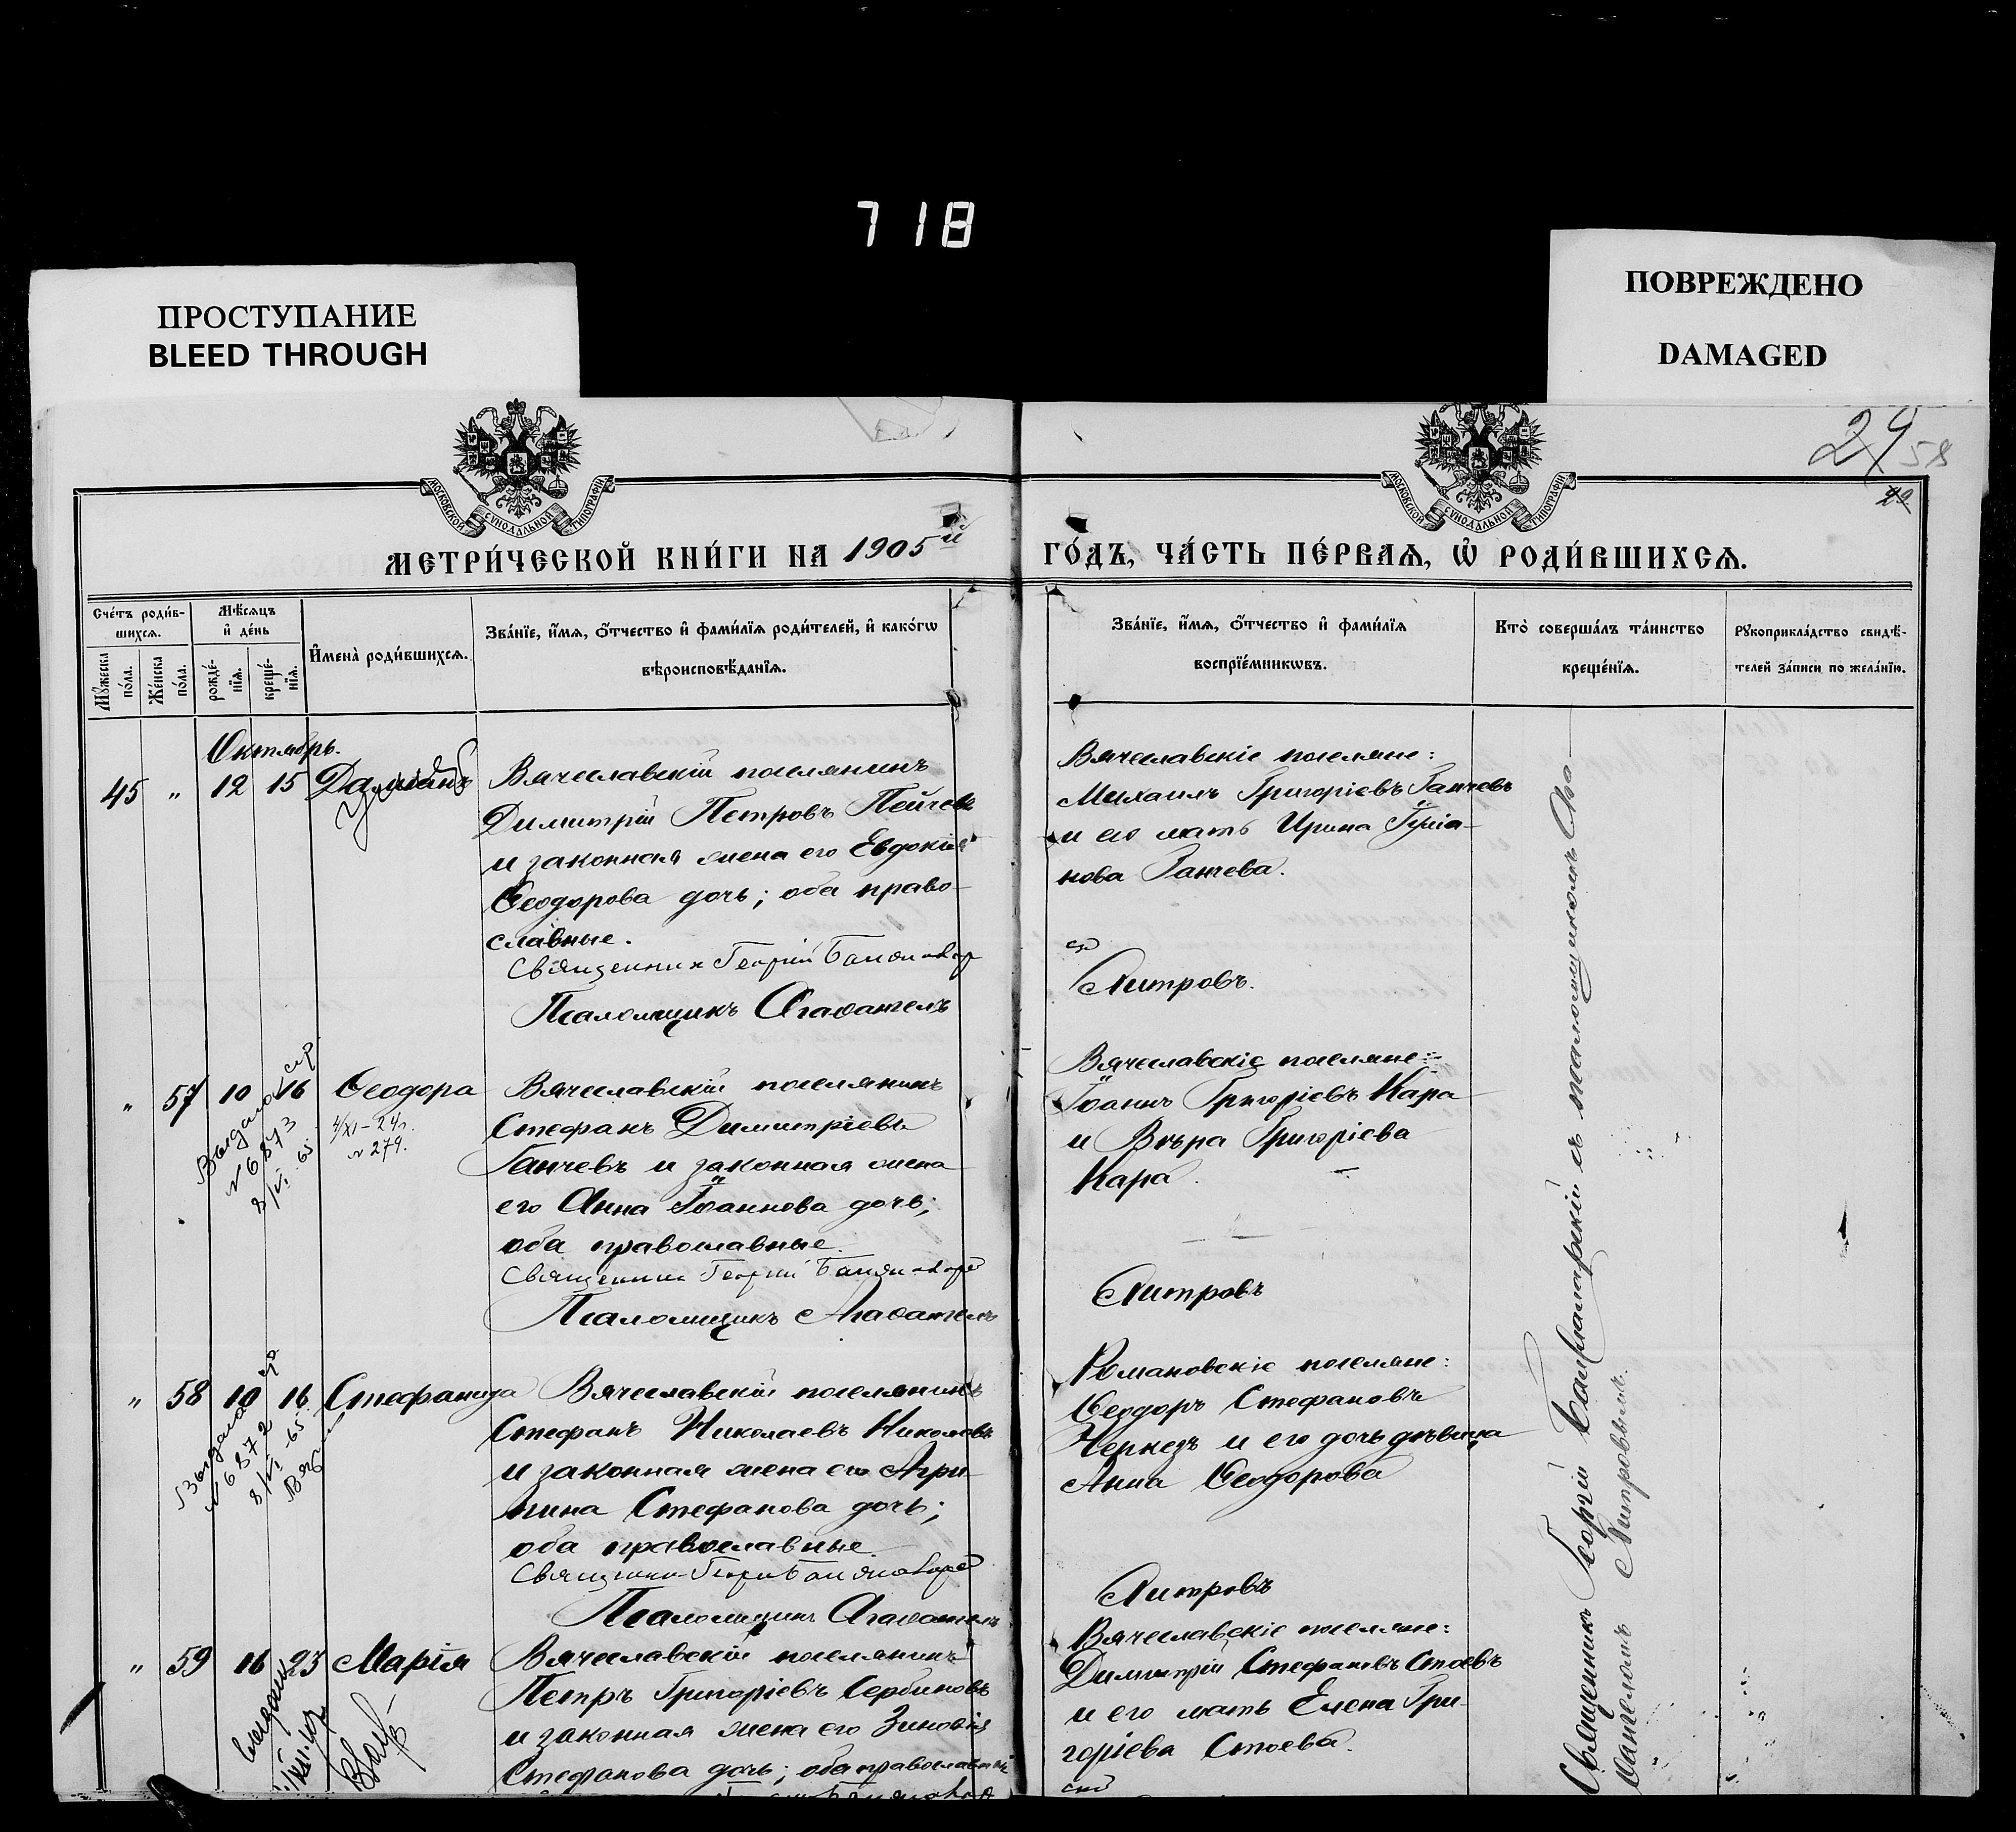 718
ПРОСТУПАНИЕ
BLEED THROUGH
ПОВРЕЖДЕНО
DAMAGED
МОСКОВСКОЙ СѴНОДАЛЬНОЙ ТИПОГРАФІИ
МОСКОВСКОЙ СѴНОДАЛЬНОЙ ТИПОГРАФІИ
29 58
29
МЕТРИ́ЧЕСКОЙ КНИ́ГИ НА 1905й
ГО́ДЪ, ЧА́СТЬ ПЕ́РВАѦ, Ѽ РОДИ́ВШИХСѦ.
Сче́тъ роди́в-
шихсѧ.
Мꙋ́жеска по́ла.
Же́нска по́ла.
Мѣ́сѧцъ
и҆ де́нь
рожде́-
нїѧ.
креще́-
нїѧ.
И҆мена̀ роди́вшихсѧ.
Зва́нїе, и҆́мѧ, ѻ҆́тчество и҆ фами́лїѧ роди́телей, и҆ како́гѡ
вѣроисповѣ́данїѧ.
Зва́нїе, и҆́мѧ, ѻ҆́тчество и҆ фами́лїѧ
воспрїе́мникѡвъ.
Кто̀ соверша́лъ та́инство
креще́нїѧ.
Рꙋкоприкла́дство свидѣ́-
телей за́писи по жела́нїю.
Октябрь.
45 " 12 15 Даміанъ
Вячеславскій поселянинъ
Димитрій Петровъ Пейчевъ
и законная жена его Евдокія
Ѳеодорова дочь; оба право-
славные.
Священникъ Георгій
Псаломщикъ Агаѳангелъ
Вячеславскіе поселяне:
Михаилъ Григоріевъ Ганчевъ
и его мать Ирина
нова Ганчева.
Литровъ.
" 57 10 16 Ѳеодора
Выдана
№ 6873
8/VI 65
4/XI-24г.
№ 279.
Вячеславскій поселянинъ
Стефанъ Димитріевъ
Ганчевъ и законная жена
его Анна Іоаннова дочь;
оба православные.
Священникъ Георгій
Псаломщикъ Агаѳангелъ
Вячеславскіе поселяне:
Іоаннъ Григоріевъ Кара
и Вѣра Григоріева
Кара.
Литровъ
" 58 10 16 Стефанида
Выдана
№ 6872
8/VI-65
Вячеславскій поселянинъ
Стефанъ Николаевъ Николовъ
и законная жена его Агри-
пина Стефанова дочь;
оба православные.
Священникъ Георгій
Псаломщикъ Агаѳангелъ
Романовскіе поселяне:
Ѳеодоръ Стефановъ
Черкезъ и его дочь дѣвица
Анна Ѳеодорова
Литровъ
" 59 16 23 Марія
Вячеславскій поселянинъ
Петръ Григоріевъ Сербиновъ
и законная жена его Зиновія
Стефанова дочь; оба православные
Вячеславскіе поселяне:
Димитрій Стефановъ Стоевъ
и его мать Елена Гри-
горіева Стоева.
Священникъ Георгій съ псаломщикомъ Ага-
ѳангеломъ Литровымъ.